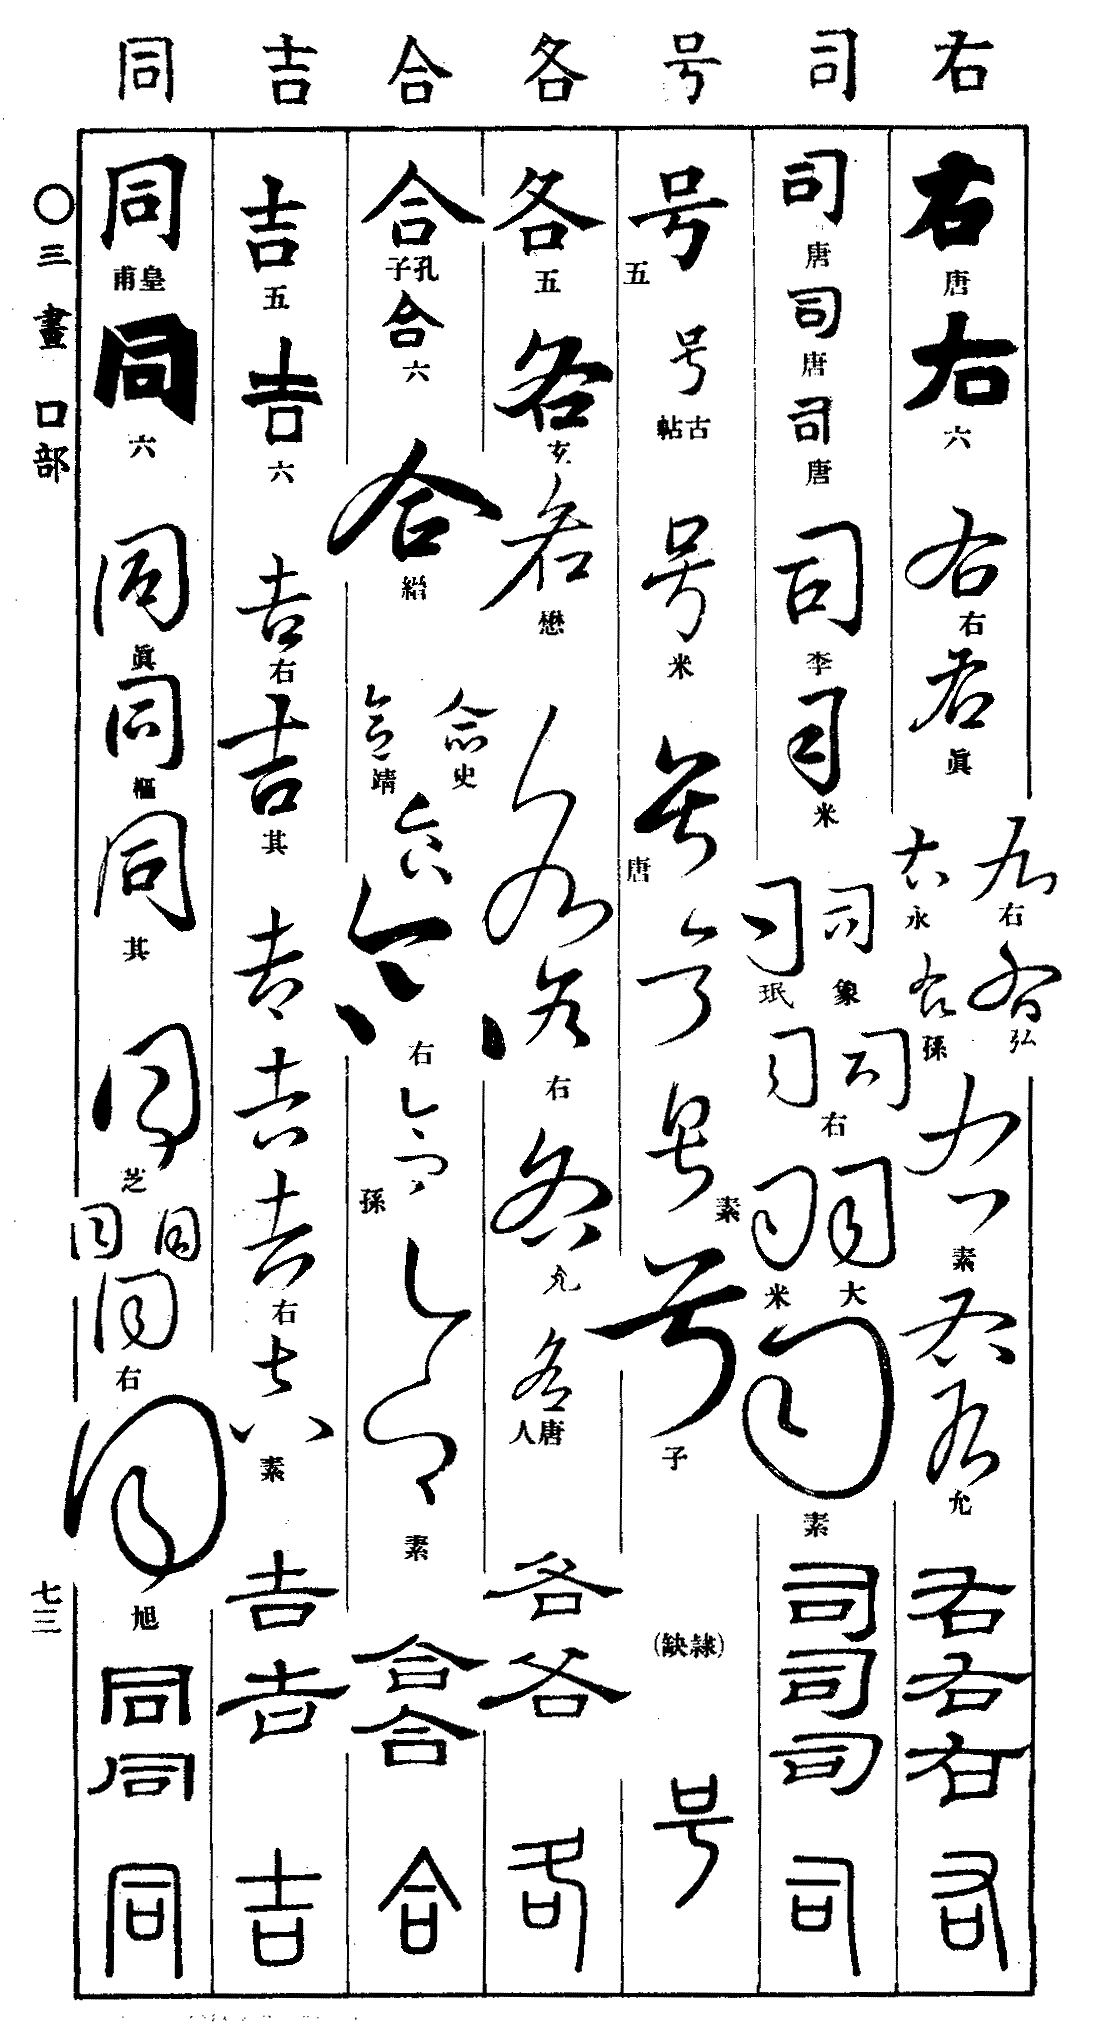 右 司 号 各 合 吉 同
右 唐 右 六 右 右 右 眞 右 右 右 永 右 弘 右 孫 右 素 右 右 允 右 右 右 右
司 唐 司 唐 司 唐 司 李 司 米 司 象 司 珉 司 司 右 司 大 司 米 司 素 司 司 司 司
号 五 号 古帖 号 米 号 唐 号 号 素 号 子 (隷缺) 号
各 五 各 玄 各 懋 各 各 右 各 允 各 唐人 各 各 各
合 孔子 合 六 合 紹 合 史 合 靖 合 合 右 合 孫 合 素 合 合 合
吉 五 吉 六 吉 右 吉 其 吉 吉 吉 右 吉 素 吉 吉 吉
同 皇甫 同 六 同 眞 同 樞 同 其 同 芝 同 同 同 右 同 旭 同 同 同
〇三畫 口部 七三